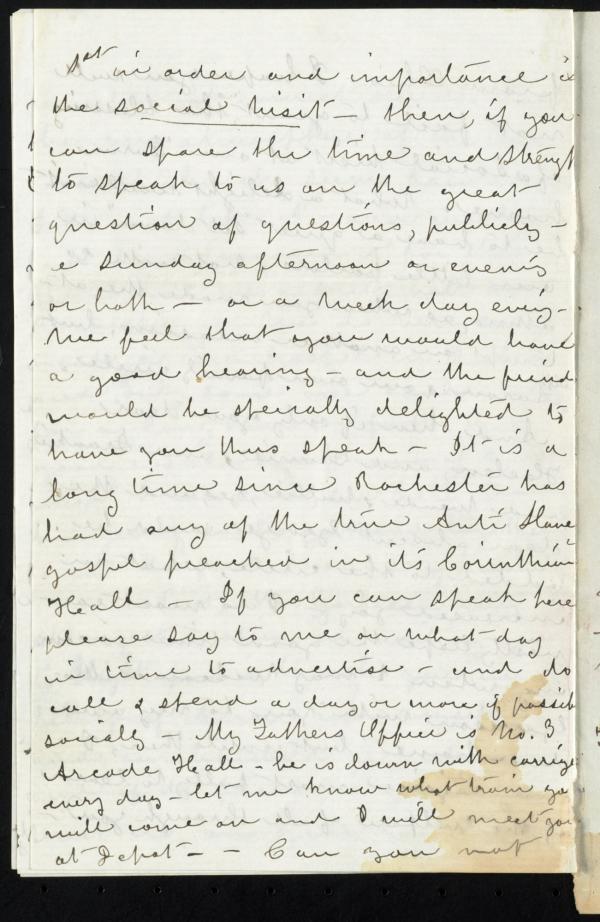 1st in order and importance is
the social visit — then, if you
can spare the time and strength
to speak to us on the great
question of questions, publicly —
a Sunday afternoon or evening
or both — or a week day eve'g —
we feel that you would have
a good hearing — and the friends
would be specially delighted to
have you thus speak — It is a
long time since Rochester has
had any of the true Anti Slave
gospel preached in its Corinthian
Hall — If you can speak here
please say to me on what day
in time to advertise — and do
call & spend a day or more if possible
socially — My Fathers Office is No. 3
Arcade Hall — he is down with carriage
every day — let me know what train you
will come on and I will meet you
at Depot — — Can you not